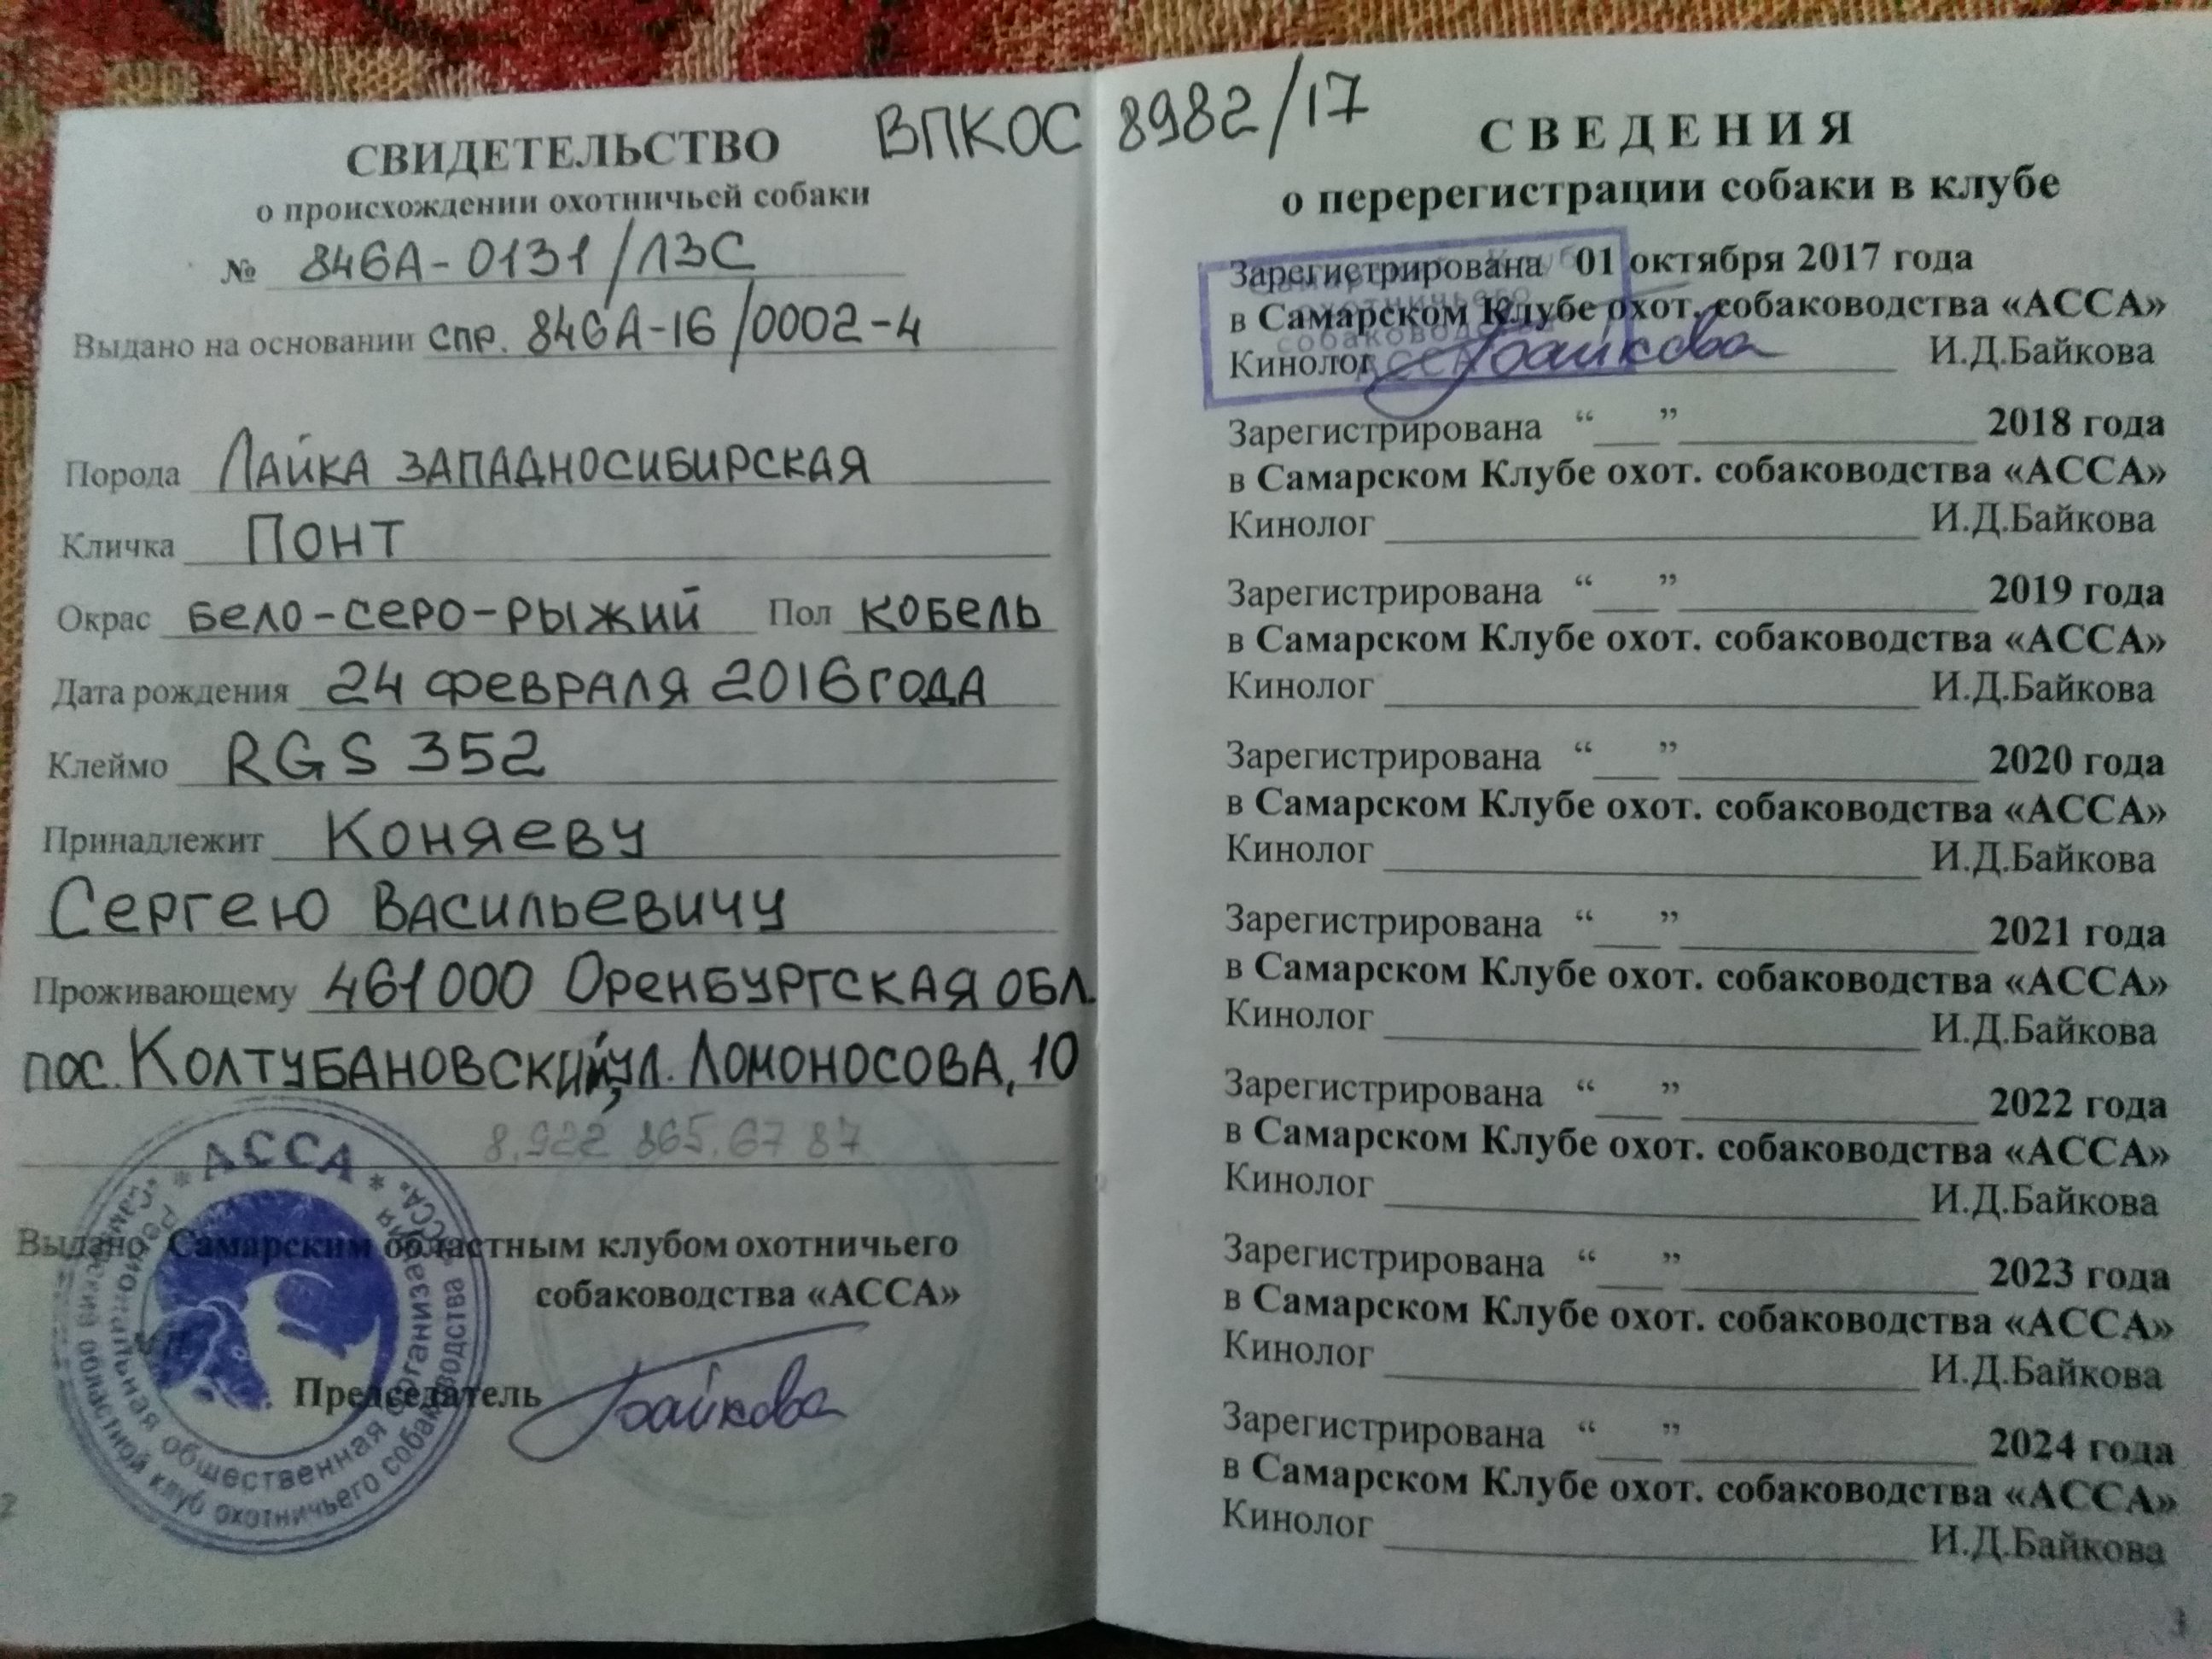 ВПКОС 8982/17
СВИДЕТЕЛЬСТВО
о происхождении охотничьей собаки
№ 846А-0131/ЛЗС
Выдано на основании спр. 846А-16/0002-4
Порода Лайка западносибирская
Кличка Понт
Окрас бело-серо-рыжий Пол кобель
Дата рождения 24 февраля 2016 года
Клеймо RGS 352
Принадлежит Коняеву
Сергею Васильевичу
Проживающему 461000 Оренбургская обл.
пос. Колтубановский, ул. Ломоносова, 10
8.922 865.67 87
Выдано Самарским областным клубом охотничьего
собаководства «АССА»
Председатель Байкова
* АССА *
Региональная общественная организация
Самарский областной клуб охотничьего собаководства "АССА"
2
СВЕДЕНИЯ
о перерегистрации собаки в клубе
Зарегистрирована 01 октября 2017 года
в Самарском Клубе охот. собаководства «АССА»
Кинолог Байкова И.Д.Байкова
Клуб
охотничьего
собаководства
АССА
Зарегистрирована “___” ______________ 2018 года
в Самарском Клубе охот. собаководства «АССА»
Кинолог ______________ И.Д.Байкова
Зарегистрирована “___” ______________ 2019 года
в Самарском Клубе охот. собаководства «АССА»
Кинолог ______________ И.Д.Байкова
Зарегистрирована “___” ______________ 2020 года
в Самарском Клубе охот. собаководства «АССА»
Кинолог ______________ И.Д.Байкова
Зарегистрирована “___” ______________ 2021 года
в Самарском Клубе охот. собаководства «АССА»
Кинолог ______________ И.Д.Байкова
Зарегистрирована “___” ______________ 2022 года
в Самарском Клубе охот. собаководства «АССА»
Кинолог ______________ И.Д.Байкова
Зарегистрирована “___” ______________ 2023 года
в Самарском Клубе охот. собаководства «АССА»
Кинолог ______________ И.Д.Байкова
Зарегистрирована “___” ______________ 2024 года
в Самарском Клубе охот. собаководства «АССА»
Кинолог ______________ И.Д.Байкова
3